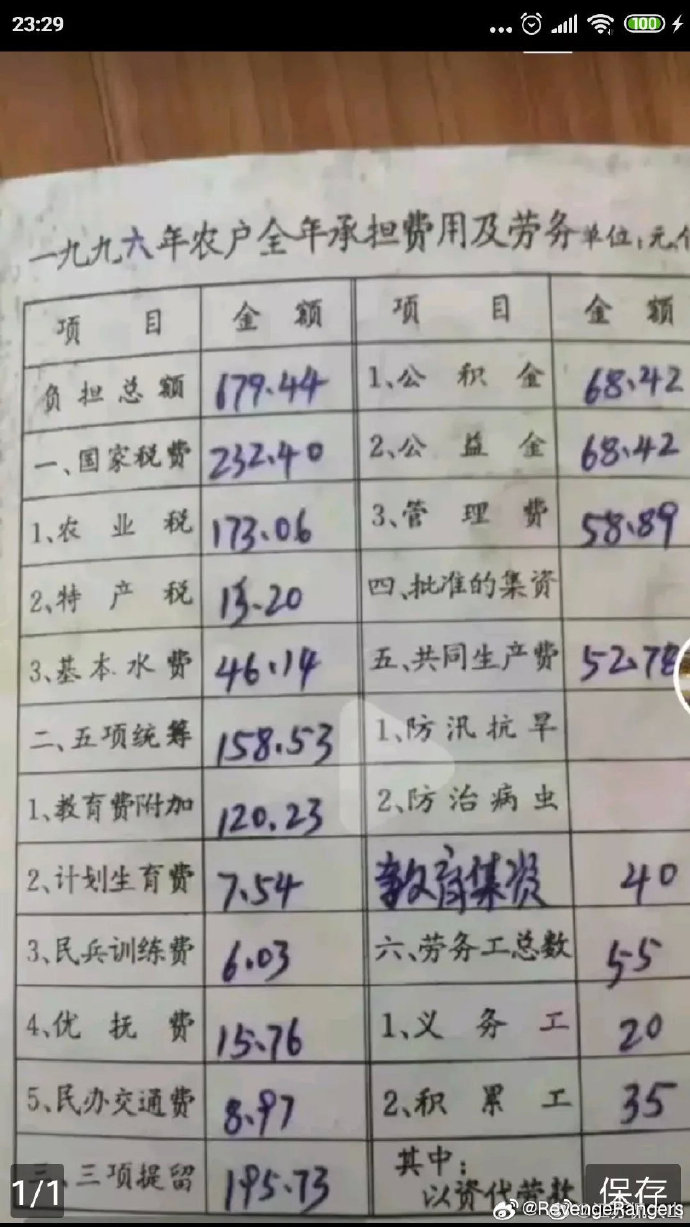 23:29
100
一九九六年农户全年承担费用及劳务 单位:元、
项 目 金 额 项 目 金 额
负担总额 679.44 1、公 积 金 68.42
一、国家税费 232.40 2、公 益 金 68.42
1、农 业 税 173.06 3、管 理 费 58.89
2、特 产 税 13.20 四、批准的集资
3、基本水费 46.14 五、共同生产费 52.78
二、五项统筹 158.53 1、防汛抗旱
1、教育费附加 120.23 2、防治病虫
2、计划生育费 7.54 教育集资 40
3、民兵训练费 6.03 六、劳务工总数 55
4、优 抚 费 15.76 1、义 务 工 20
5、民办交通费 8.97 2、积 累 工 35
三、三项提留 195.73 其中:
以资代劳数
1/1
保存
@RevengeRangers